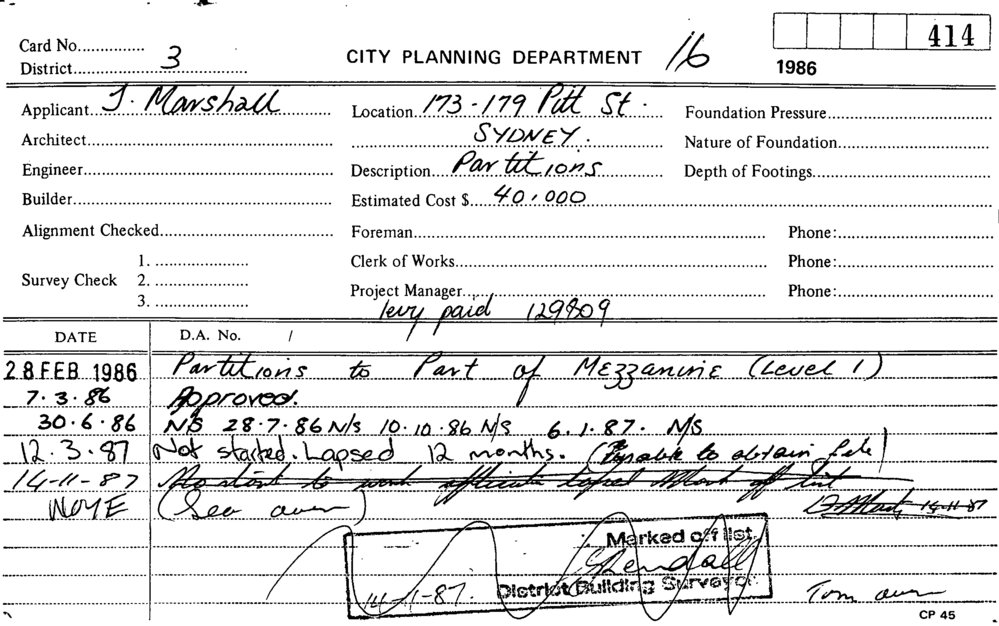 Card No............... CITY PLANNING DEPARTMENT 16 414
District 3 1986
Applicant J. Marshall Location 173-179 Pitt St. Foundation Pressure
Architect SYDNEY. Nature of Foundation
Engineer Description Partitions Depth of Footings
Builder Estimated Cost $ 40,000
Alignment Checked Foreman Phone:
1. Clerk of Works Phone:
Survey Check 2.
3. Project Manager Phone:
levy paid 129809
DATE D.A. No. /
28 FEB 1986 Partitions to Part of Mezzanine (Level 1)
7.3.86 Approved.
30.6.86 N/S 28.7.86 N/S 10.10.86 N/S 6.1.87. N/S
12.3.87 Not started. Lapsed 12 months. (Unable to obtain file)
14-11-87 No start to work Mark off list
NOTE (See over) 14-11-87
Marked off list
14-11-87. District Building Surveyor
Tom
CP 45